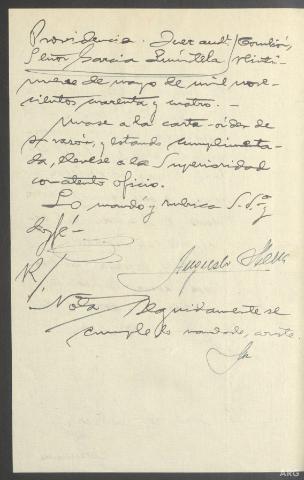 Providencia. Juez acctl.
Señor Garcia Quintela
de mayo de mil nove-
cientos cuarenta y cuatro.-
Unase a la carta-orden de
su razón, y estando cumplimenta-
da, elevese a la Superioridad
con atento oficio.
Lo mandó y rubrica S. Sª y
doy fé-
R/
Augusto
Nota Seguidamente se
cumple lo mandado,
ARG